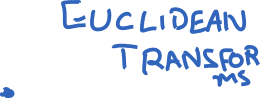 EUCLIDEAN
TRANSFOR
MS